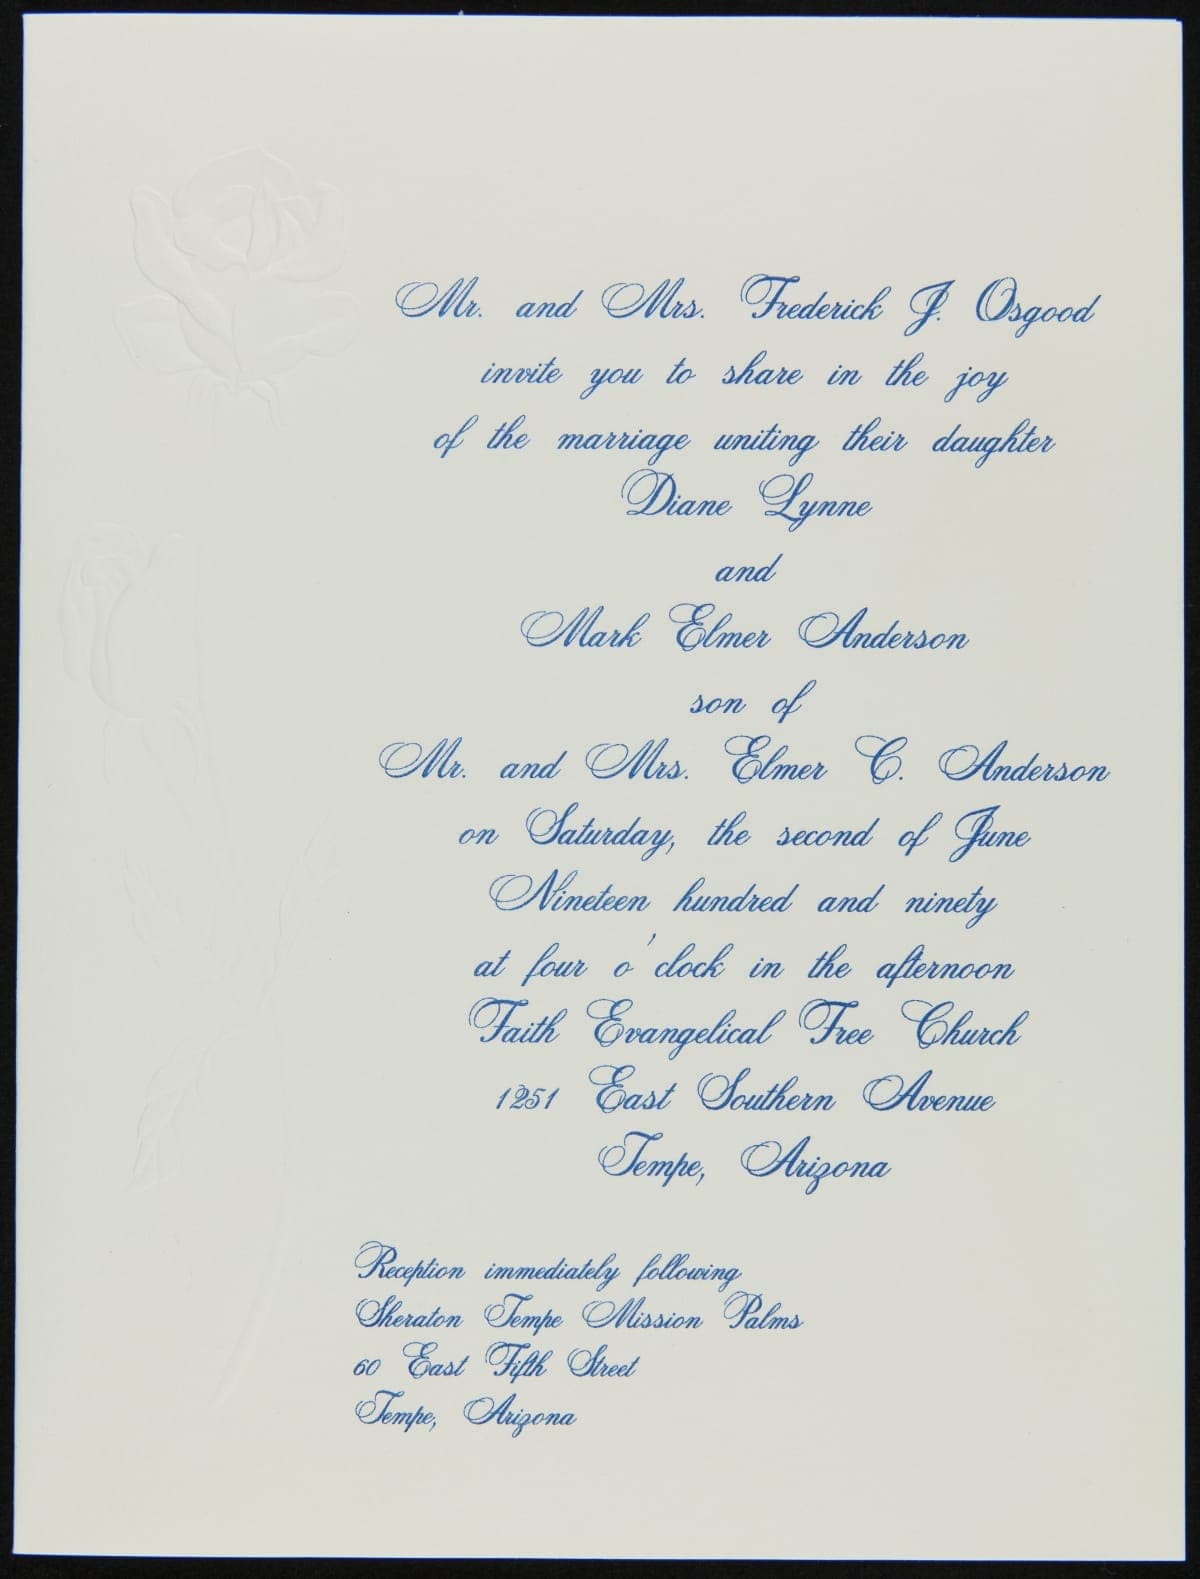 Mr. and Mrs. Frederick J. Osgood
invite you to share in the joy
of the marriage uniting their daughter
Diane Lynne
and
Mark Elmer Anderson
son of
Mr. and Mrs. Elmer C. Anderson
on Saturday, the second of June
Nineteen hundred and ninety
at four o'clock in the afternoon
Faith Evangelical Free Church
1251 East Southern Avenue
Tempe, Arizona
Reception immediately following
Sheraton Tempe Mission Palms
60 East Fifth Street
Tempe, Arizona